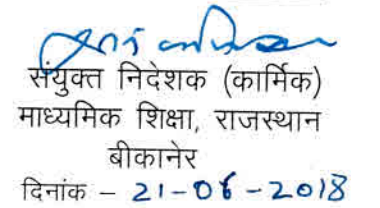 संयुक्त निदेशक (कार्मिक)
माध्यमिक शिक्षा, राजस्थान
बीकानेर
दिनांक - 21-06-2018